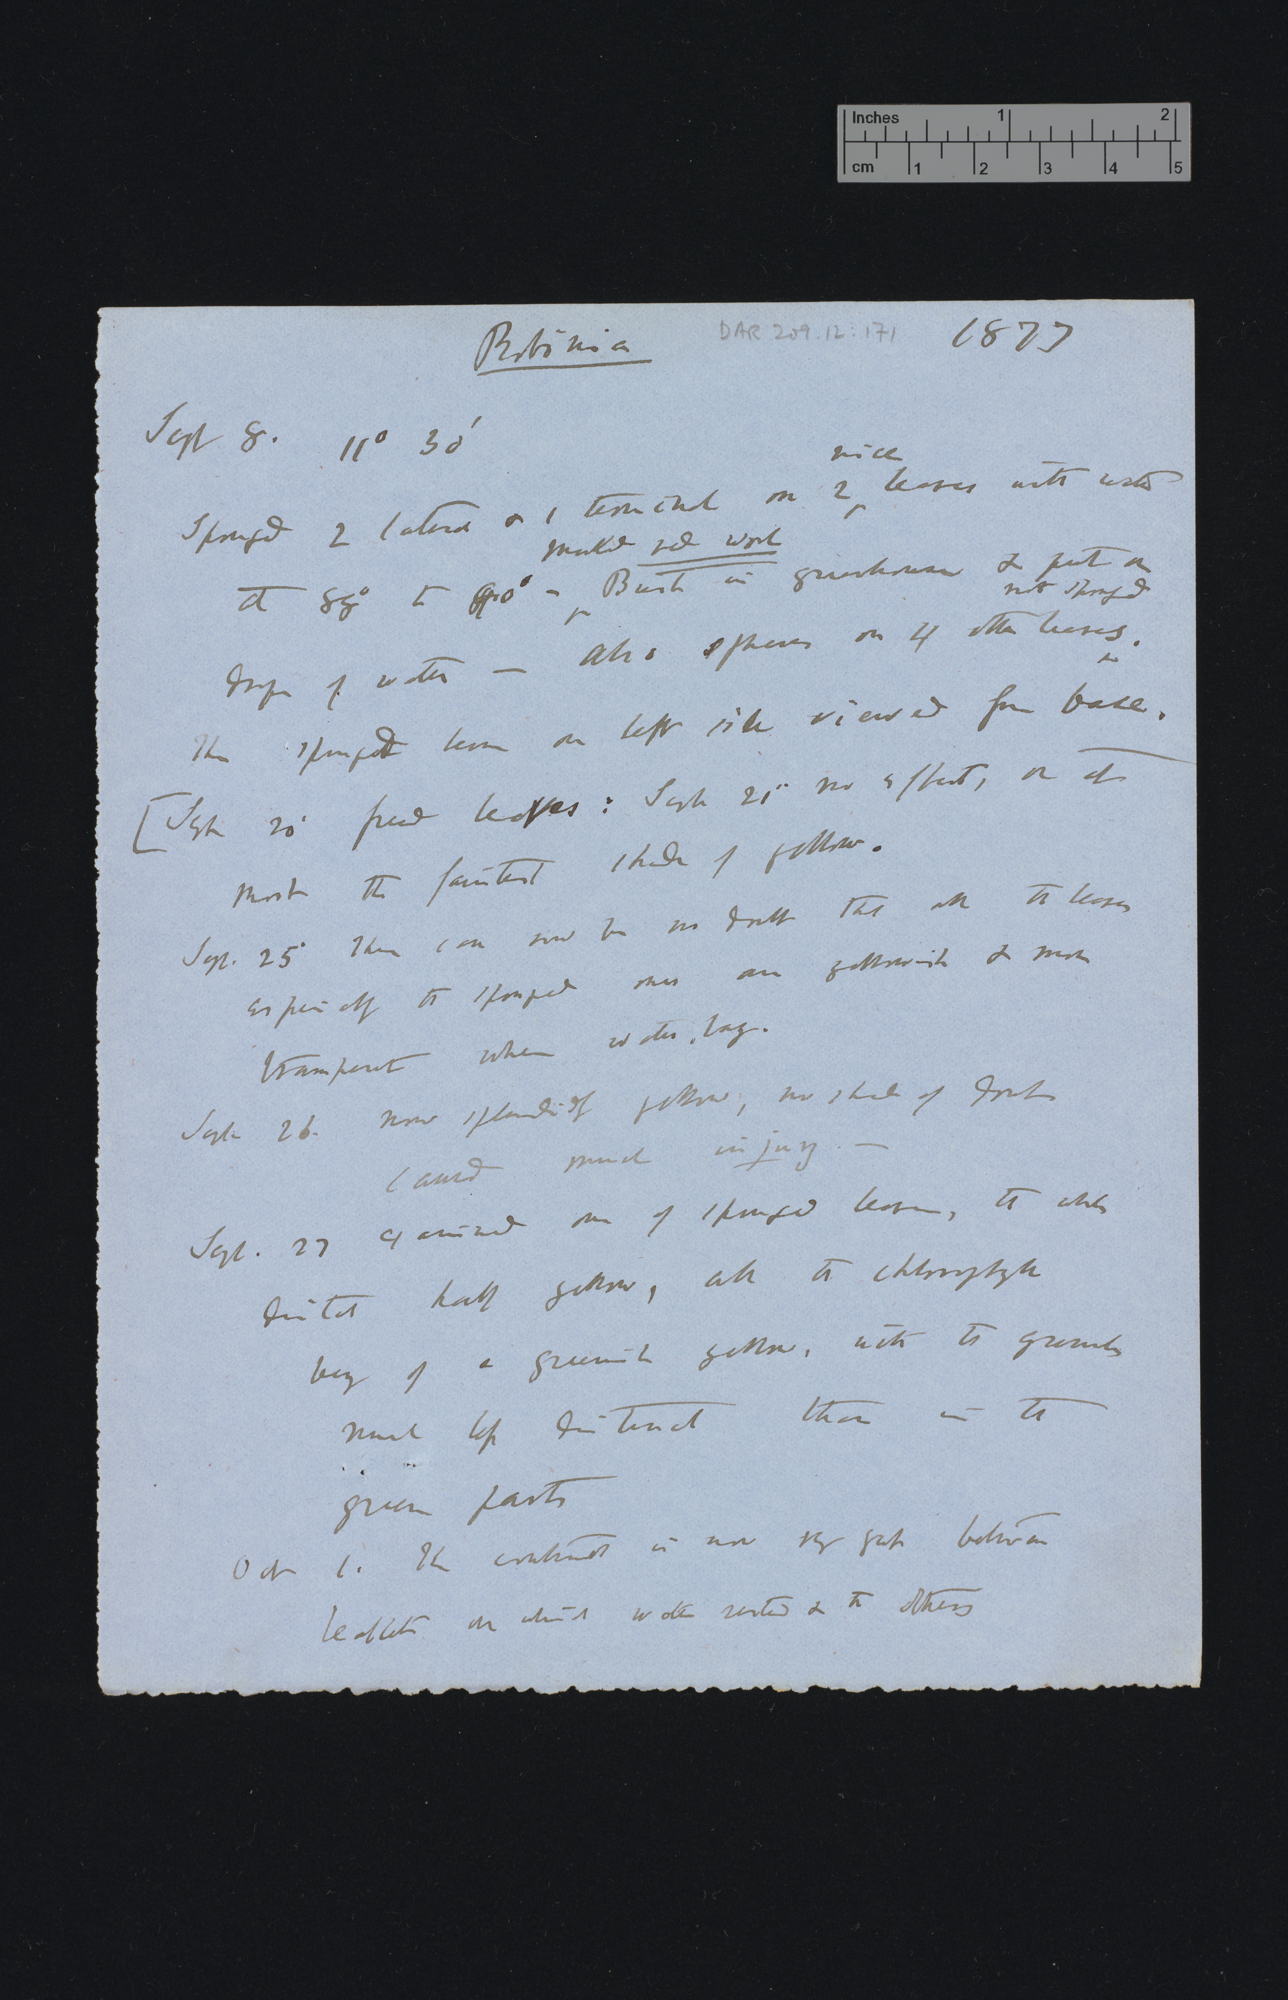 Inches 1 2
cm 1 2 3 4 5
Robinia DAR 209.12:171 1877
Sept 8. 11° 30'
nice
Sponged 2 lateral & 1 terminal on 2 leaves with water
marked red wool
at 88° to 90° — Bush in greenhouse & put on
not sponged
drops of water — Also spheres on 4 other leaves.
The sponged leaves on left side viewed from base.
[Sept 20 freed leaves: Sept 21 no effect, or at
most the faintest shade of yellow.
Sept. 25 There can now be no doubt that all the leaves
especially the sponged ones are yellowish & more
transparent where water lay.
Sept 26. now splendidly yellow, no shade of doubt
caused much injury —
Sept. 27 examined one of sponged leaves, the whole
distal half yellow, all the chlorophyll
being of a greenish yellow, with the granules
much less distinct than in the
green parts
Oct 1. The contrast is now very great between
leaflets on which water rested & the others